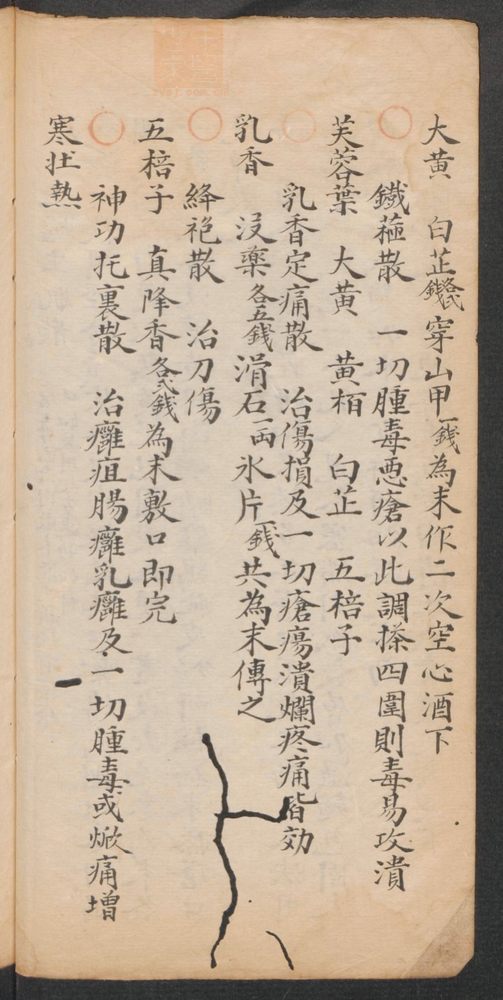 大黄　白芷各弍錢穿山甲一錢為末作二次空心酒下
〇鐵箍散　一切腫毒悪瘡以此調搽四圍則毒易攻潰
芙蓉葉　大黄　黄栢　白芷　五棓子
〇乳香定痛散　治傷損及一切瘡瘍潰爛疼痛皆効
乳香　没藥各五錢滑石一両氷片一錢共為末傅之
〇絳袍散　治刀傷
五棓子　真降香各弍錢為末敷口即完
〇神功托裏散　治癰疽腸癰乳癰及一切腫毒或焮痛增
寒壯熱